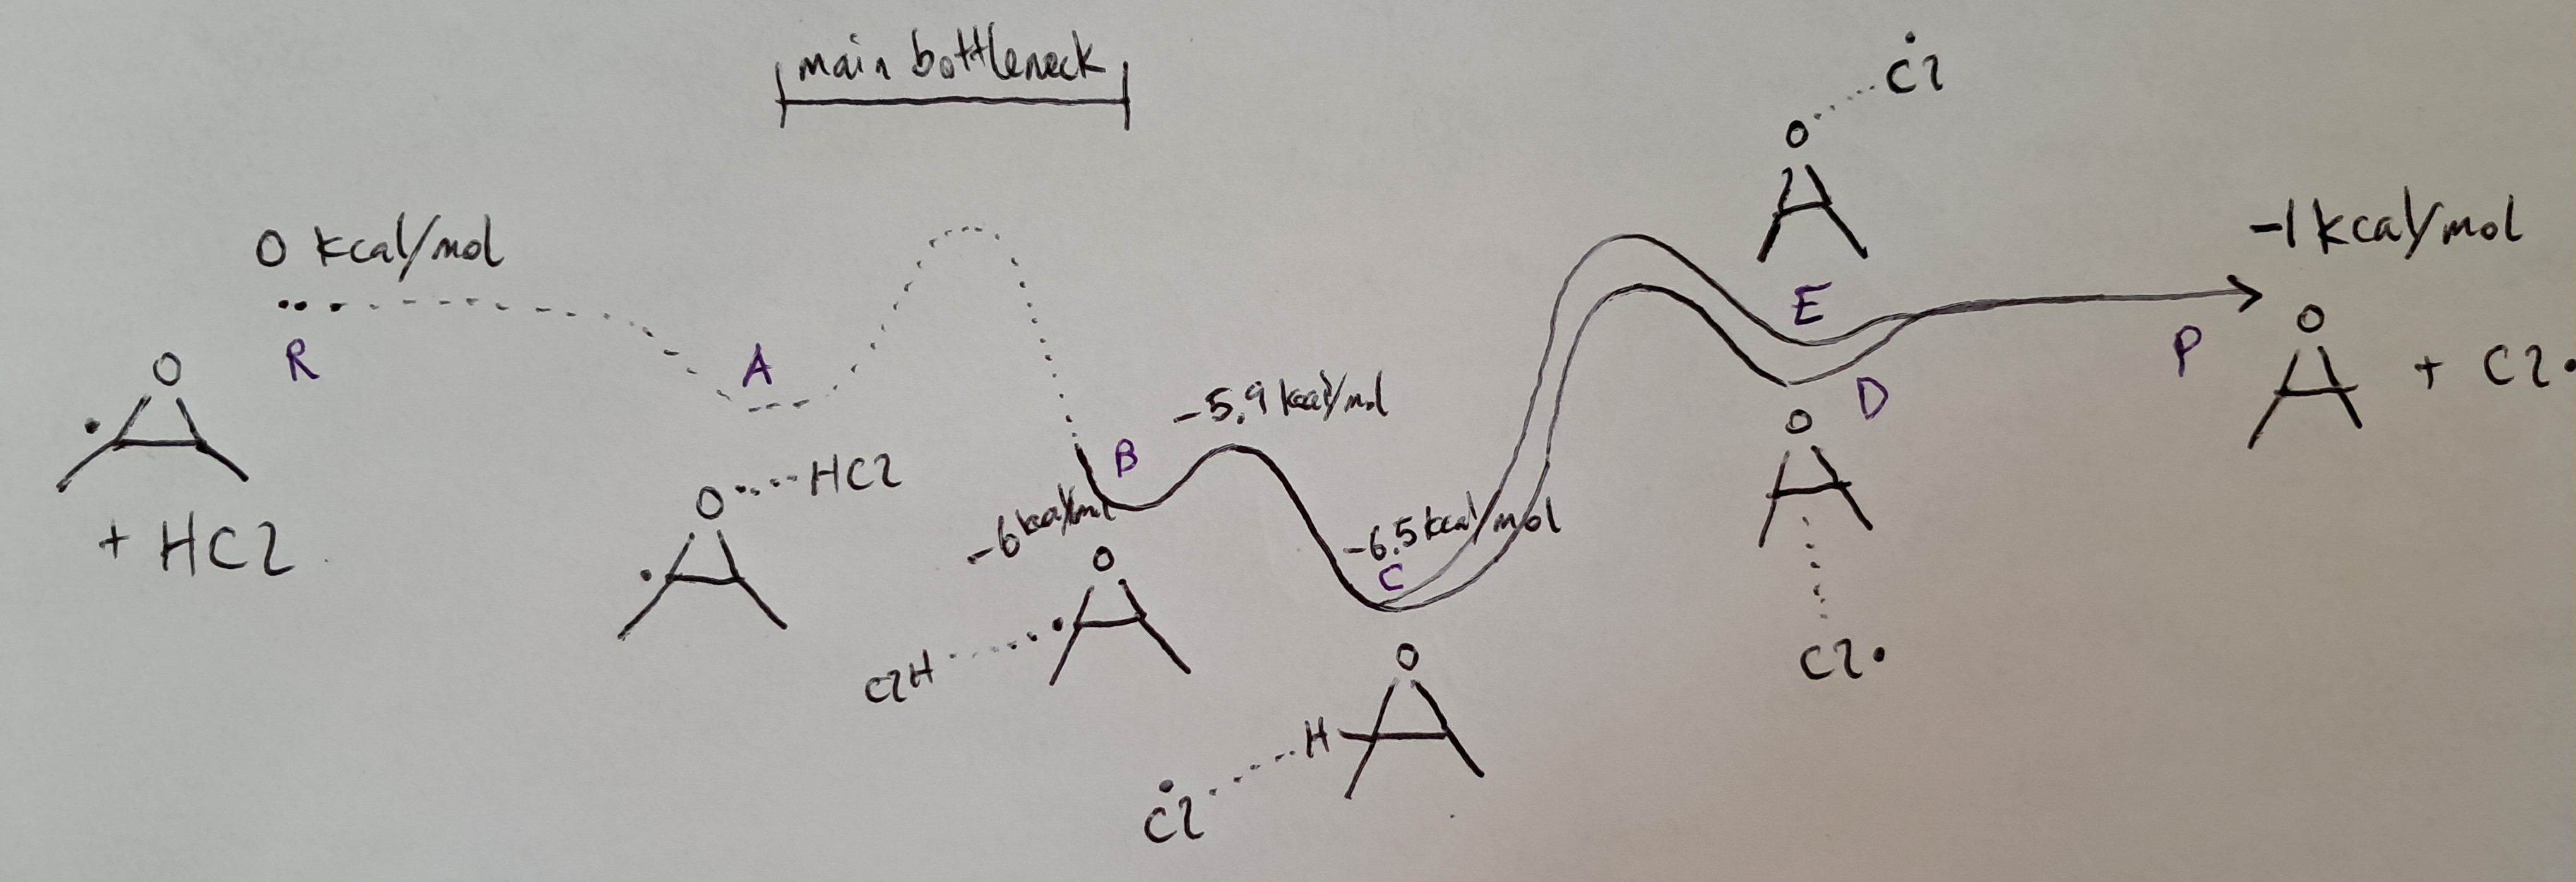 main bottleneck
0 kcal/mol
R
O
+ HCl
A
O HCl
-6 kcal/mol
B
O
ClH
-5.9 kcal/mol
-6.5 kcal/mol
C
O
H
Cl
Cl
O
E
D
O
Cl
-1 kcal/mol
P
O
+ Cl